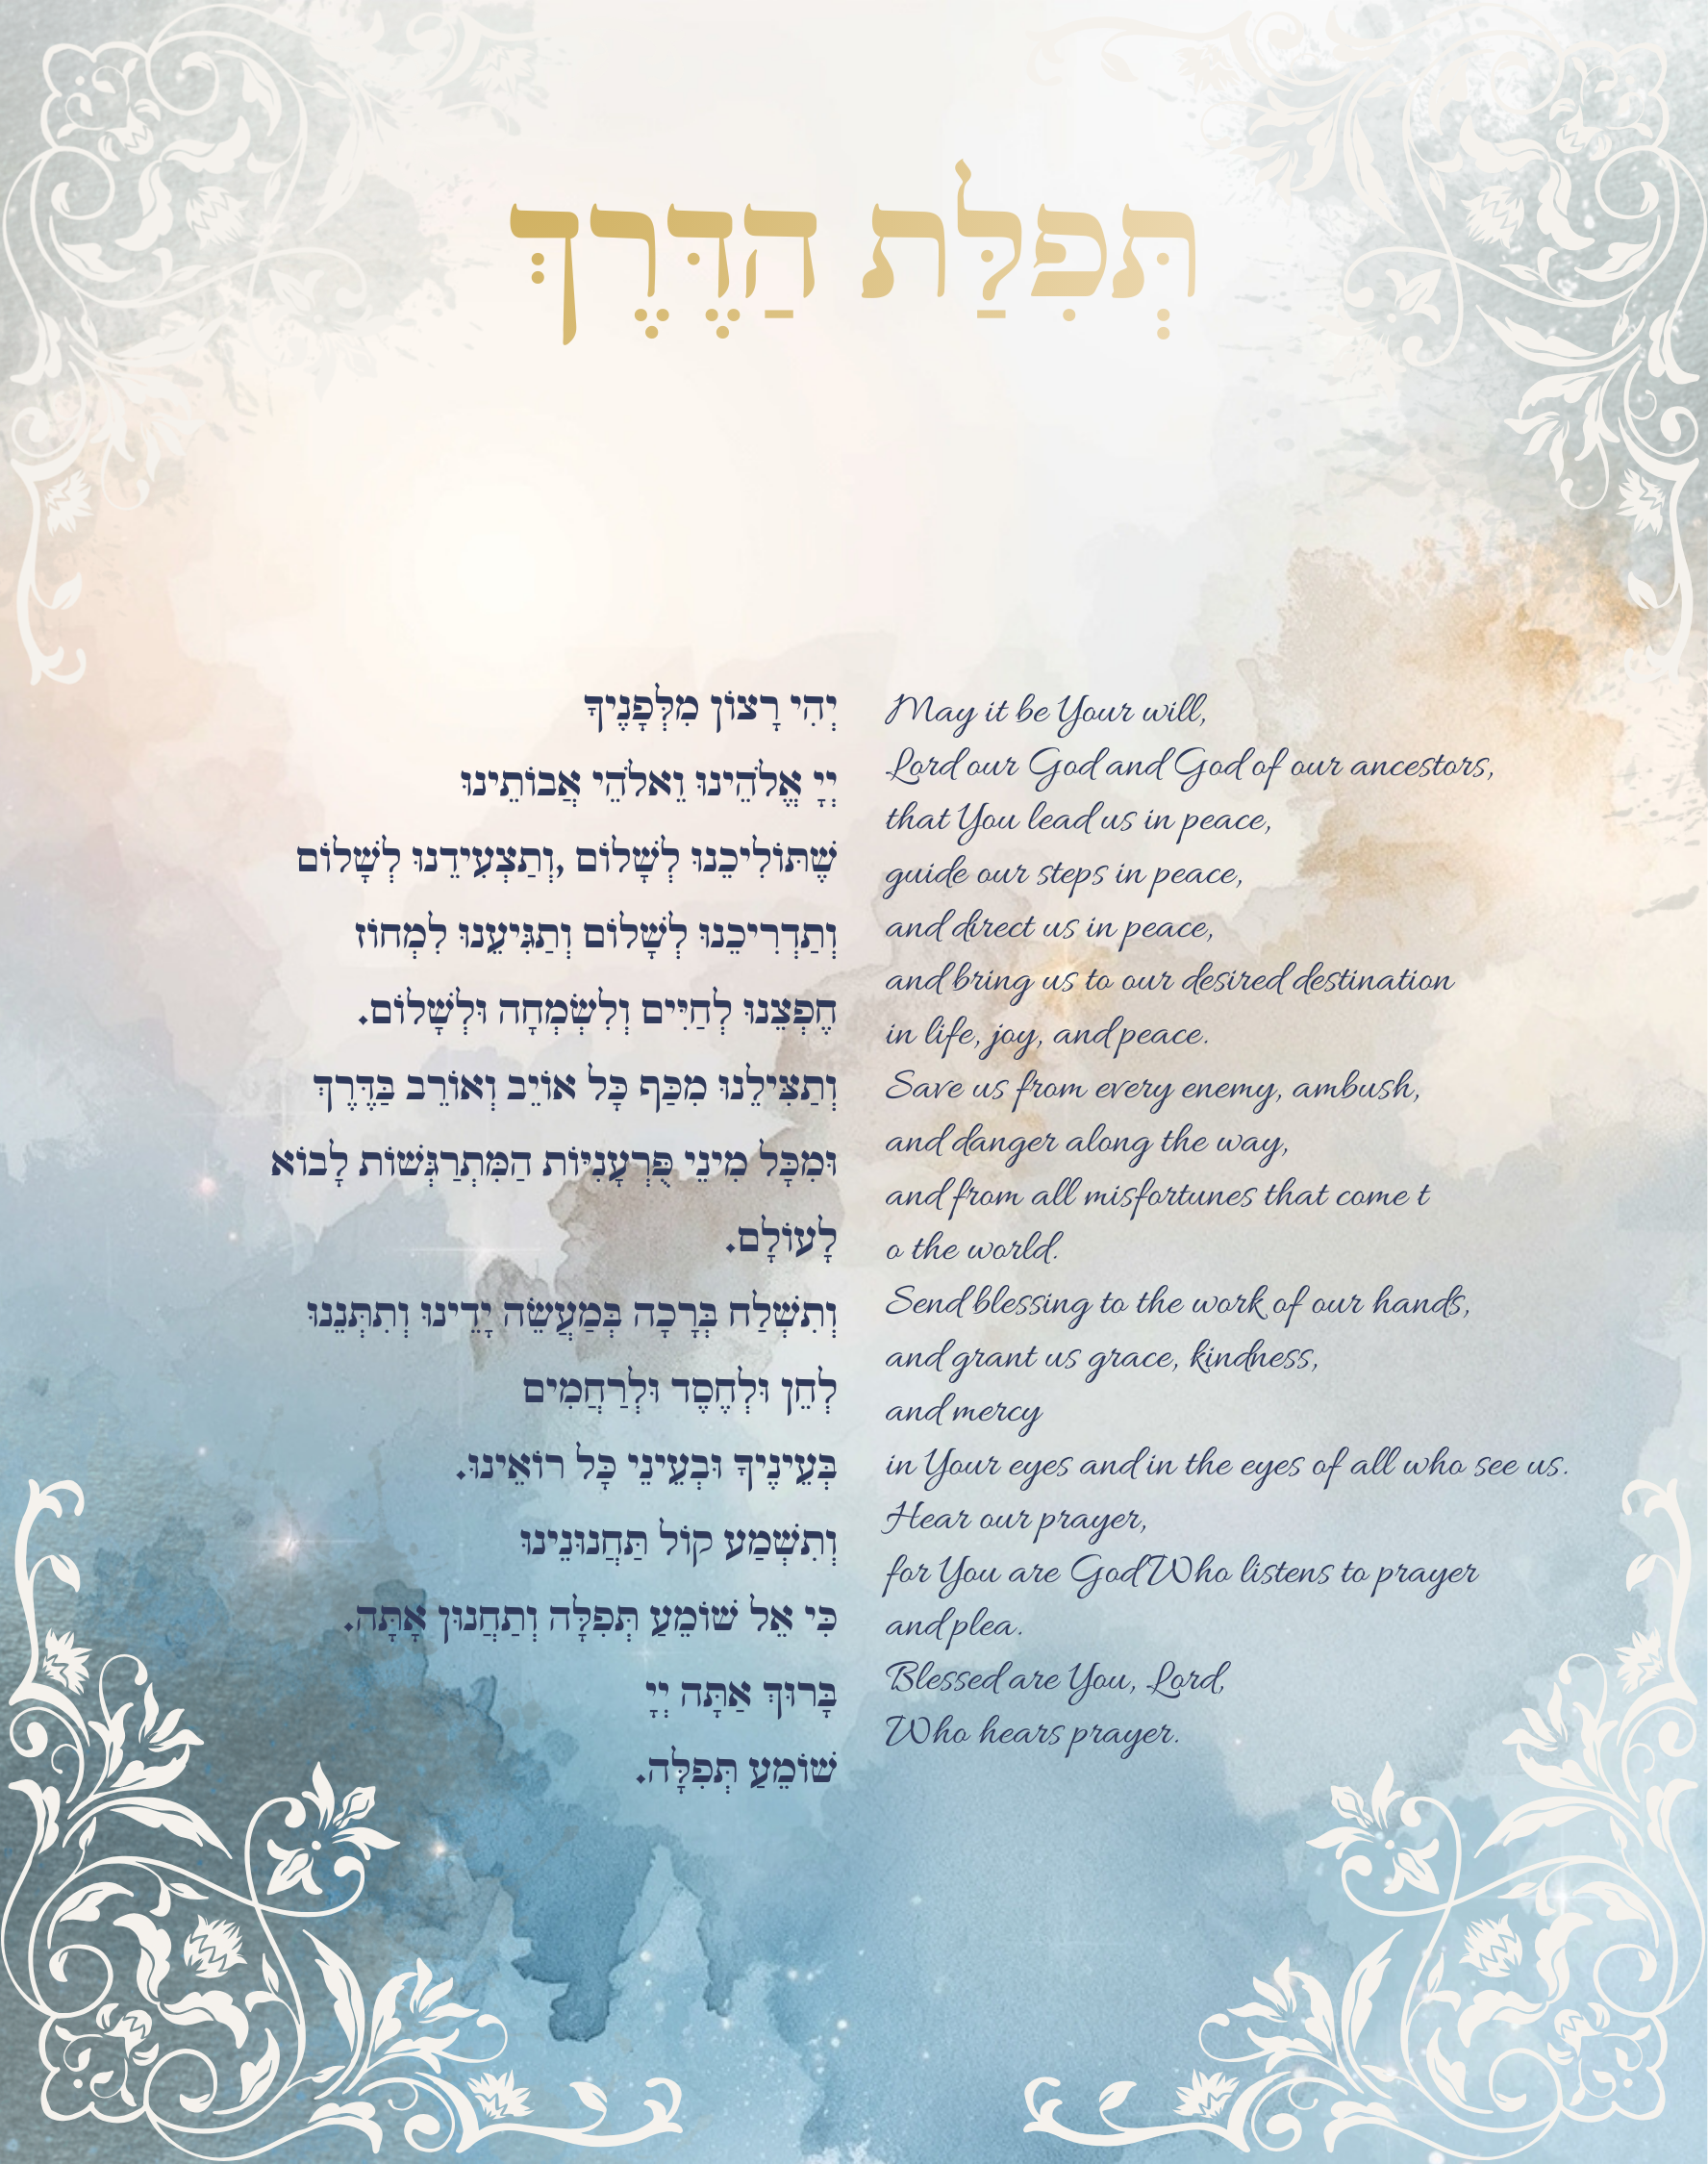 תְּפִלַּת הַדֶּרֶךְ
יְהִי רָצוֹן מִלְּפָנֶיךָ
יְיָ אֱלֹהֵינוּ וֵאלֹהֵי אֲבוֹתֵינוּ
שֶׁתּוֹלִיכֵנוּ לְשָׁלוֹם ,וְתַצְעִידֵנוּ לְשָׁלוֹם
וְתַדְרִיכֵנוּ לְשָׁלוֹם וְתַגִּיעֵנוּ לִמְחוֹז
חֶפְצֵנוּ לְחַיִּים וְלִשְׂמְחָה וּלְשָׁלוֹם.
וְתַצִּילֵנוּ מִכַּף כָּל אוֹיֵב וְאוֹרֵב בַּדֶּרֶךְ
וּמִכָּל מִינֵי פֻּרְעָנִיּוֹת הַמִּתְרַגְּשׁוֹת לָבוֹא
לָעוֹלָם.
וְתִשְׁלַח בְּרָכָה בְּמַעֲשֵׂה יָדֵינוּ וְתִתְּנֵנוּ
לְחֵן וּלְחֶסֶד וּלְרַחֲמִים
בְּעֵינֶיךָ וּבְעֵינֵי כָּל רוֹאֵינוּ.
וְתִשְׁמַע קוֹל תַּחֲנוּנֵינוּ
כִּי אֵל שׁוֹמֵעַ תְּפִלָּה וְתַחֲנוּן אָתָּה.
בָּרוּךְ אַתָּה יְיָ
שׁוֹמֵעַ תְּפִלָּה.
May it be Your will,
Lord our God and God of our ancestors,
that You lead us in peace,
guide our steps in peace,
and direct us in peace,
and bring us to our desired destination
in life, joy, and peace.
Save us from every enemy, ambush,
and danger along the way,
and from all misfortunes that come t
o the world.
Send blessing to the work of our hands,
and grant us grace, kindness,
and mercy
in Your eyes and in the eyes of all who see us.
Hear our prayer,
for You are God Who listens to prayer
and plea.
Blessed are You, Lord,
Who hears prayer.